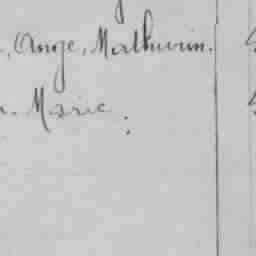 , Ange, Mathurin.
. Marie.